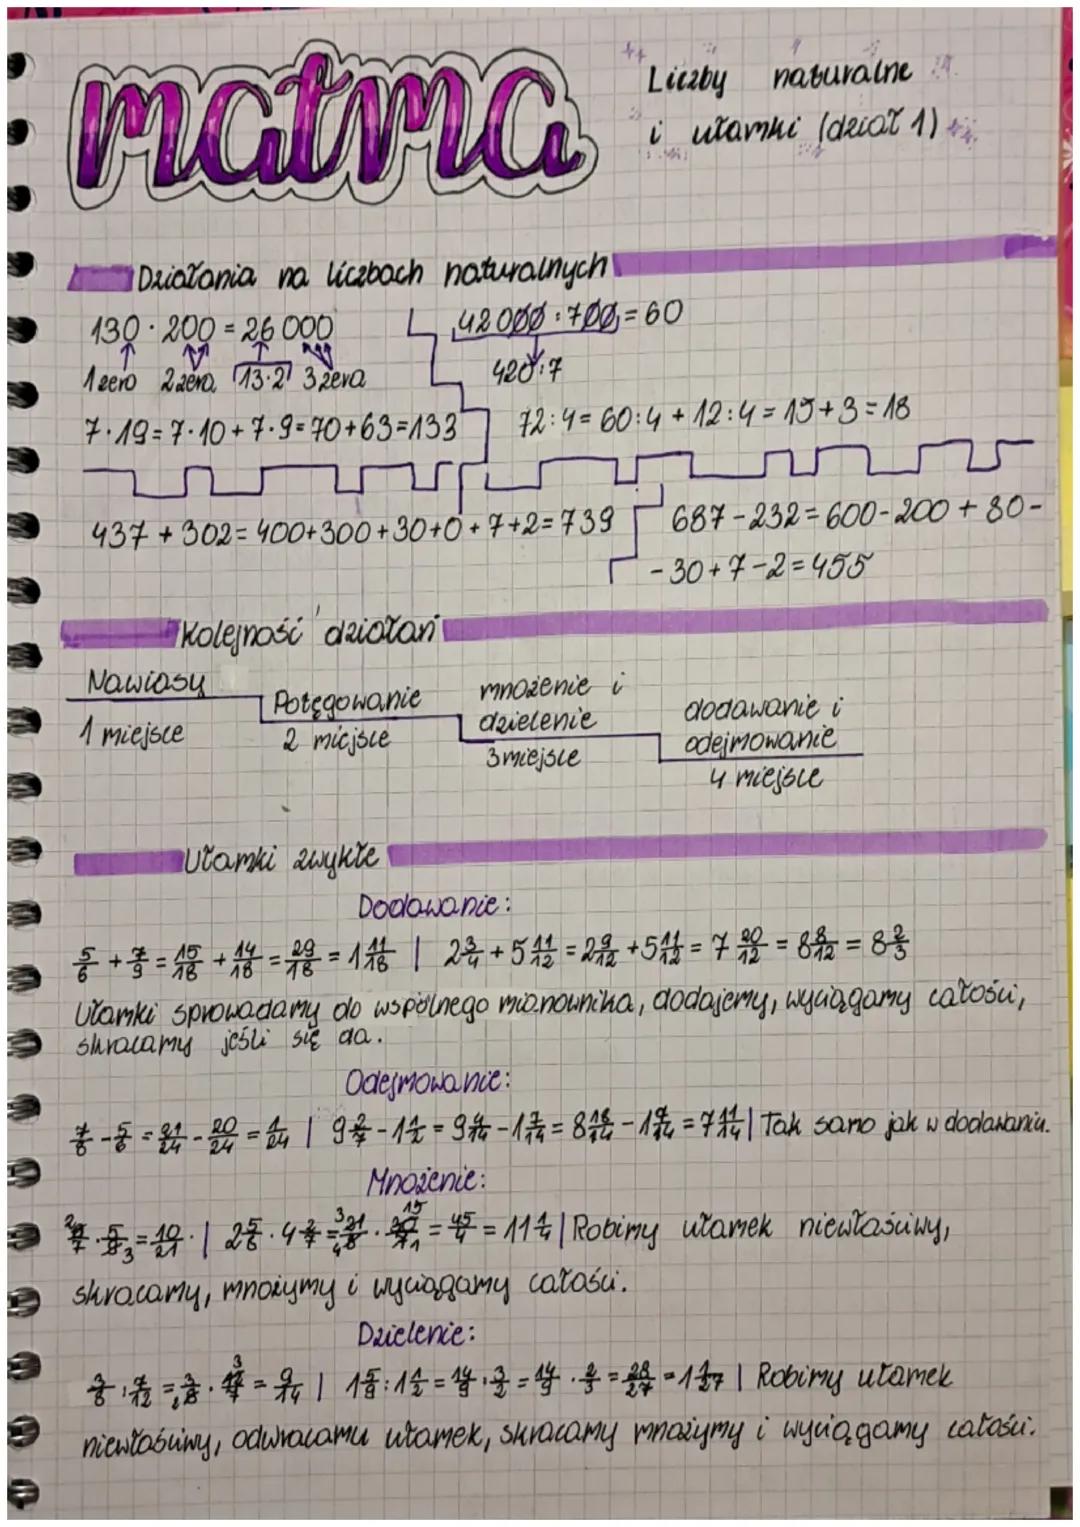 matma
Liczby naturalne
i ułamki (dział 1)
Działania na liczbach naturalnych
130 · 200 = 26 000
1 zero 2 zera 13·2 3 zera
7·19 = 7·10 + 7·9 = 70 + 63 = 133
42000 : 700 = 60
420 : 7
72 : 4 = 60 : 4 + 12 : 4 = 15 + 3 = 18
437 + 302 = 400 + 300 + 30 + 0 + 7 + 2 = 739
687 - 232 = 600 - 200 + 80 -
- 30 + 7 - 2 = 455
Kolejność działań
Nawiasy
1 miejsce
Potęgowanie
2 miejsce
mnożenie i
dzielenie
3 miejsce
dodawanie i
odejmowanie
4 miejsce
Ułamki zwykłe
Dodawanie:
5/6 + 7/9 = 15/18 + 14/18 = 29/18 = 1 11/18 | 2 3/4 + 5 11/12 = 2 9/12 + 5 11/12 = 7 20/12 = 8 8/12 = 8 2/3
Ułamki sprowadamy do wspólnego mianownika, dodajemy, wyciągamy całości,
skracamy jeśli się da.
Odejmowanie:
7/8 - 5/6 = 21/24 - 20/24 = 1/24 | 9 2/7 - 1 1/2 = 9 4/14 - 1 7/14 = 8 18/14 - 1 7/14 = 7 11/14 | Tak samo jak w dodawaniu.
Mnożenie:
· 5/ 3 = 10/21 · | 2 5/8 · 4 2/7 = 3 21/4 8 · 15 30/7 1 = 45/4 = 11 1/4 | Robimy ułamek niewłaściwy,
skracamy, mnożymy i wyciągamy całości.
Dzielenie:
3/8 : 7/12 = 3/2 8 · 3 12/7 = 9/14 | 1 5/9 : 1 1/2 = 14/9 : 3/2 = 14/9 · 2/3 = 28/27 = 1 1/27 | Robimy ułamek
niewłaściwy, odwracamu ułamek, skracamy mnożymy i wyciągamy całości.